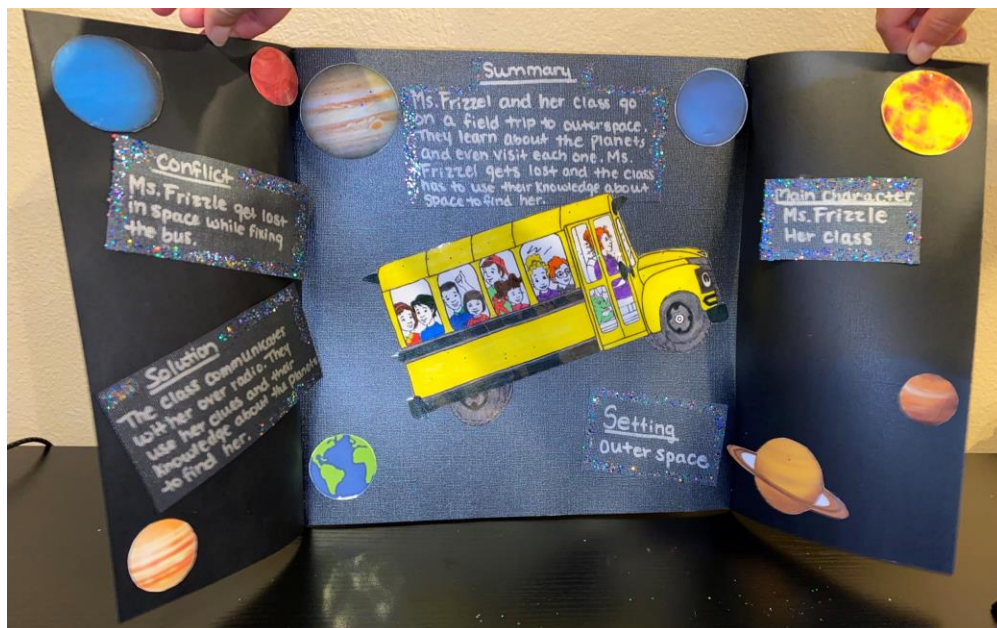 Conflict
Ms. Frizzle get lost
in space while fixing
the bus.
Solution
The class communicates
with her over radio. They
use her clues and their
knowledge about the planets
to find her.
Summary
Ms. Frizzel and her class go
on a field trip to outerspace.
They learn about the planets
and even visit each one. Ms.
Frizzel gets lost and the class
has to use their knowledge about
space to find her.
Setting
outer space
Main Character
Ms. Frizzle
Her class